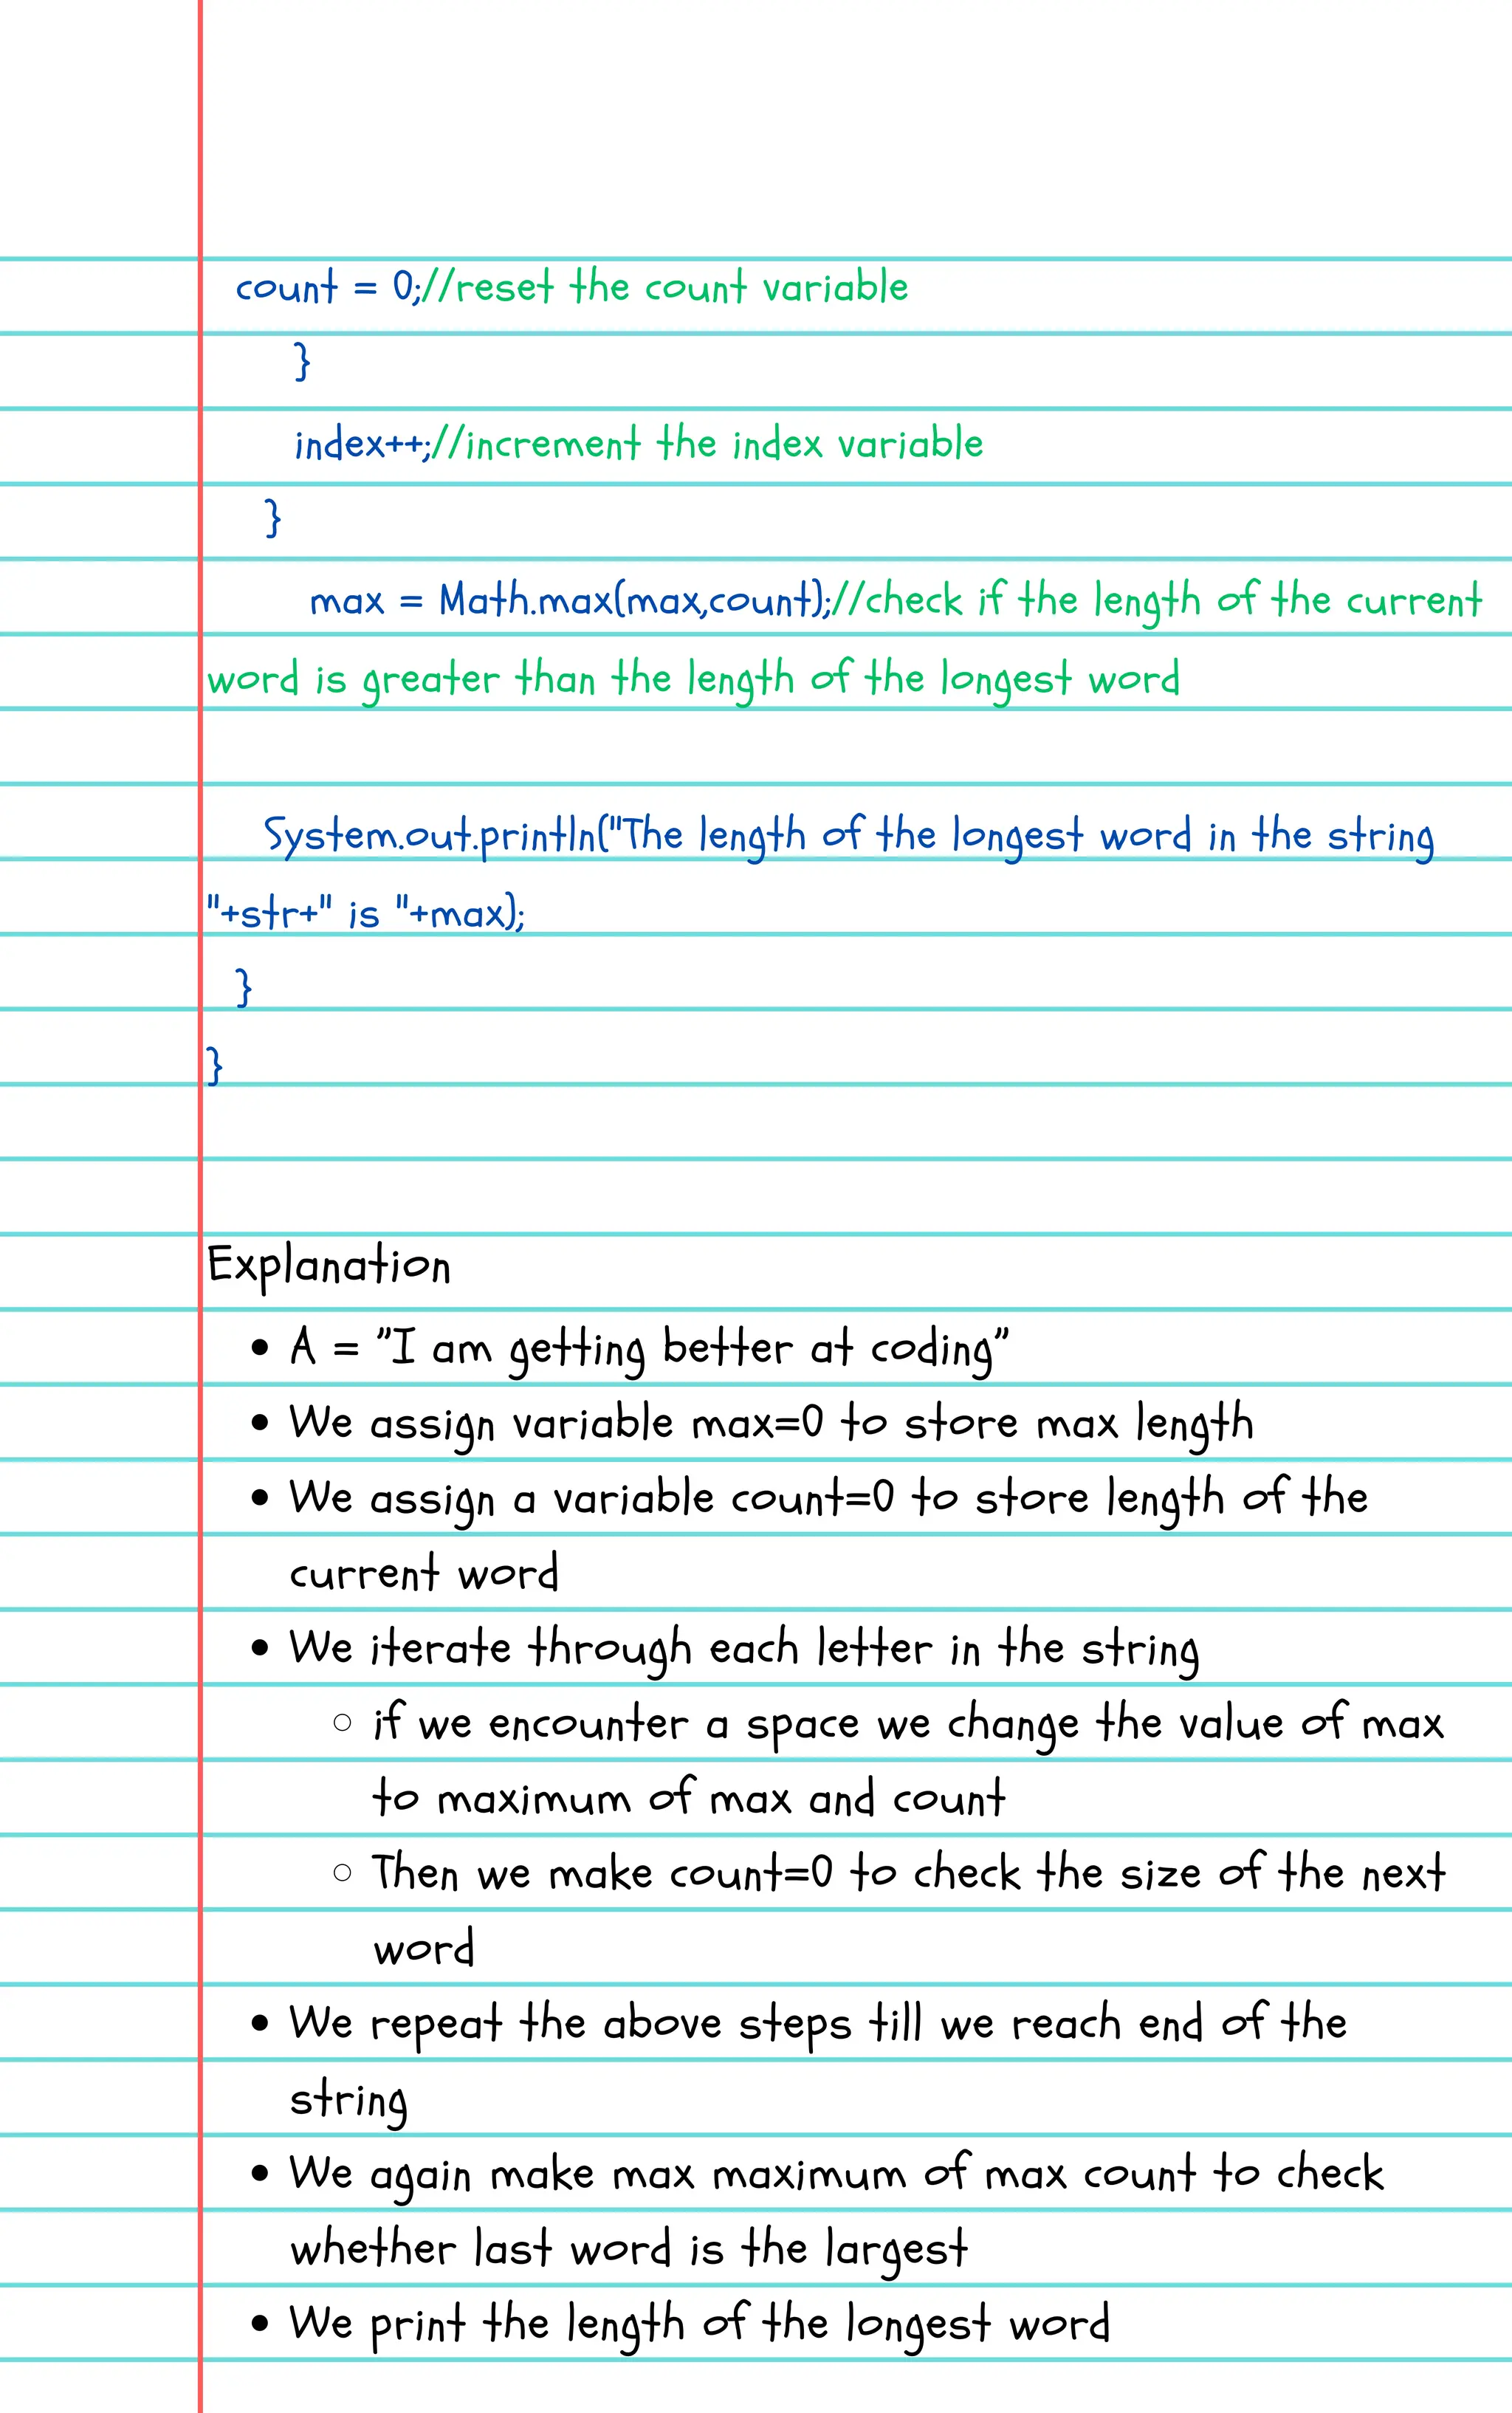 count = 0;//reset the count variable
}
index++;//increment the index variable
}
max = Math.max(max,count);//check if the length of the current
word is greater than the length of the longest word
System.out.println("The length of the longest word in the string
"+str+" is "+max);
}
}
Explanation
• A = ”I am getting better at coding”
• We assign variable max=0 to store max length
• We assign a variable count=0 to store length of the
current word
• We iterate through each letter in the string
○ if we encounter a space we change the value of max
to maximum of max and count
○ Then we make count=0 to check the size of the next
word
• We repeat the above steps till we reach end of the
string
• We again make max maximum of max count to check
whether last word is the largest
• We print the length of the longest word